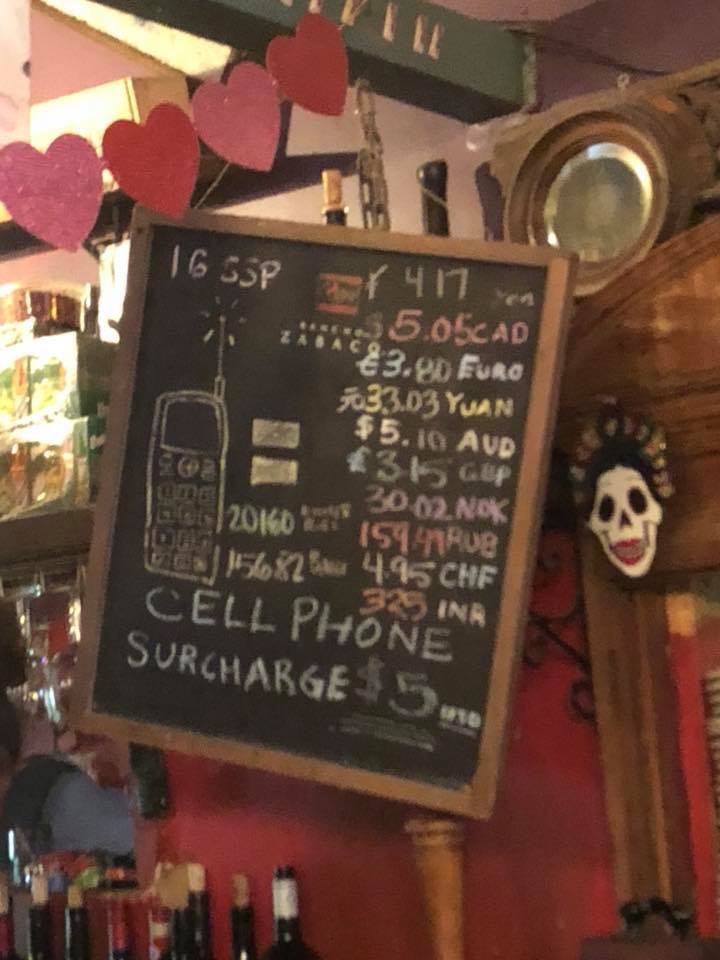 16 SSP
¥ 417 Yen
ZABACO
$5.05 CAD
€3.80 EURO
元33.03 YUAN
$5.10 AUD
£3.15 GBP
30.02 NOK
20160
159.49 RUB
156.82
4.95 CHF
325 INR
CELL PHONE
SURCHARGE $5 USD